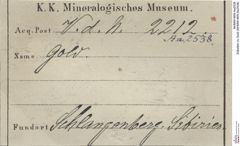 K. K. Mineralogisches Museum.
Acq. Post V. d. N. 2212.
Aa. 2538.
Name Gold.
Fundort Schlangenberg, Sibirien